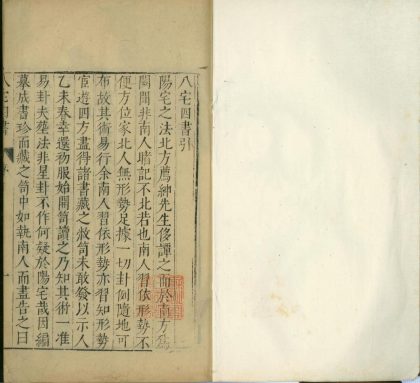 八宅四書引
陽宅之法北方薦紳先生侈譚之而於南方為
闊閒非南人暗記不北若也南人習依形勢不
便方位家北人無形勢足據一切卦例隨地可
布故其術易行余南人習依形勢亦習知形勢
宦遊四方盡得諸書藏之敝笥未敢發以示人
乙未春幸還初服始開笥讀之乃知其術一准
易卦夫葬法非星卦不作何疑於陽宅哉因編
摹成書珍而藏之笥中如執南人而盡告之曰
八宅四書